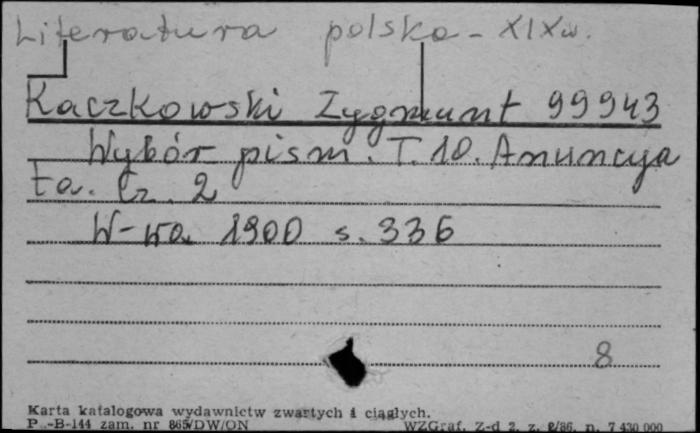 Literatura polska - XIX w.
Kaczkowski Zygmunt 99943
Wybór pism. T. 10. Anuncya
ta. Cz. 2
W-wa 1900 s. 336
8
Karta katalogowa wydawnictw zwartych i ciągłych.
P.-B-144 zam. nr 865/DW/ON WZGraf. Z-d 2. z. 2/86. n. 7 430 000